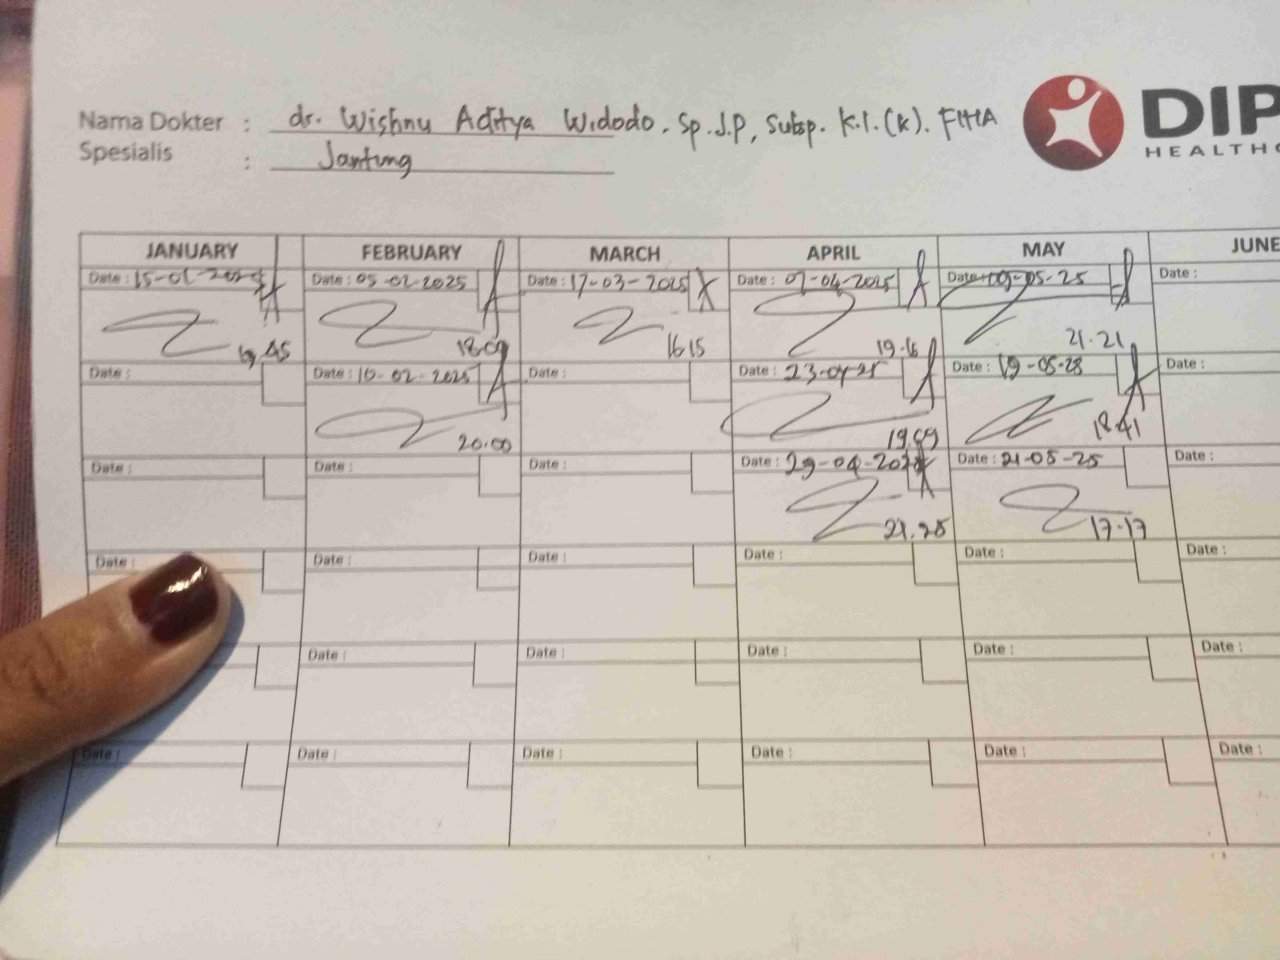 Nama Dokter : dr. Wishnu Aditya Widodo. Sp.J.P, Subsp. K.I.(K). FIHA
Spesialis : Jantung
DIP
HEALTHC
JANUARY FEBRUARY MARCH APRIL MAY JUNE
Date : 15-01-2025 Date : 05-02-2025 Date : 17-03-2025 Date : 07-04-2025 Date : 09-05-25 Date :
18.09 16.15 19.16 21.21
Date : Date : 10-02-2025 Date : Date : 23-04-25 Date : 19-05-25 Date :
20.00 19.09 18.41
Date : Date : Date : Date : 29-04-2025 Date : 21-05-25 Date :
21.25 17.17
Date : Date : Date : Date : Date : Date :
Date : Date : Date : Date : Date :
Date : Date : Date : Date : Date : Date :